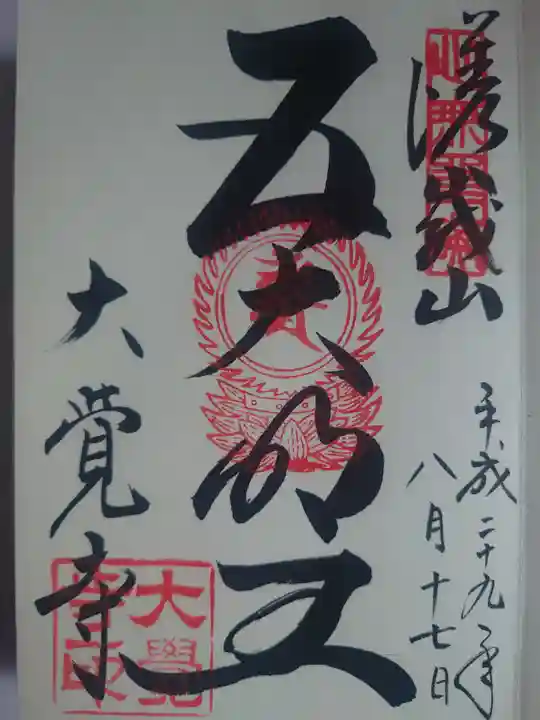 嵯峨山
平成二十九年
八月十七日
五大明王
大覚寺
大覺
寺印